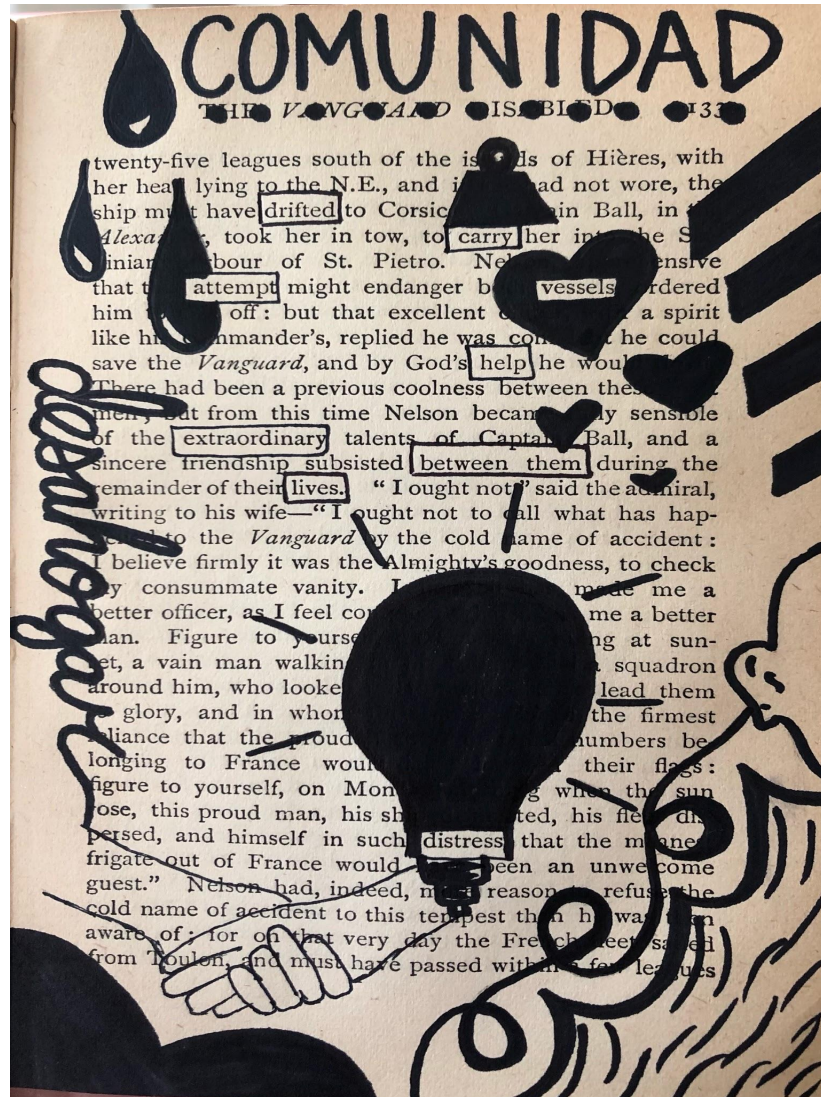 COMUNIDAD
THE VANGUARD DISABLED 133
twenty-five leagues south of the of Hières, with
her lying to the N.E., and had not wore, the
ship must have drifted to Ball, in
took her in tow, to carry her the
of St. Pietro.
that attempt might endanger vessels
him off: but that excellent a spirit
like commander's, replied he was he could
save the Vanguard, and by God's help he
There had been a previous coolness between
men; but from this time Nelson sensible
of the extraordinary talents of Captain Ball, and a
sincere friendship subsisted between them during the
remainder of their lives. “I ought not,” said the admiral,
writing to his wife—“I ought not to call what has hap-
to the Vanguard by the cold name of accident:
I believe firmly it was the Almighty's goodness, to check
my consummate vanity. made me a
better officer, as I feel me a better
man. Figure to at sun-
a vain man squadron
around him, who lead them
glory, and in the firmest
reliance that the numbers be-
longing to France their flags:
figure to yourself, on when the sun
rose, this proud man, his his
and himself in such distress, that the
frigate out of France would been an unwelcome
guest.” Nelson had, indeed, reason refuse the
cold name of accident to this tempest than he was
aware of; for on that very day the French fleet sailed
from Toulon, and must have passed within a few leagues
desahogar